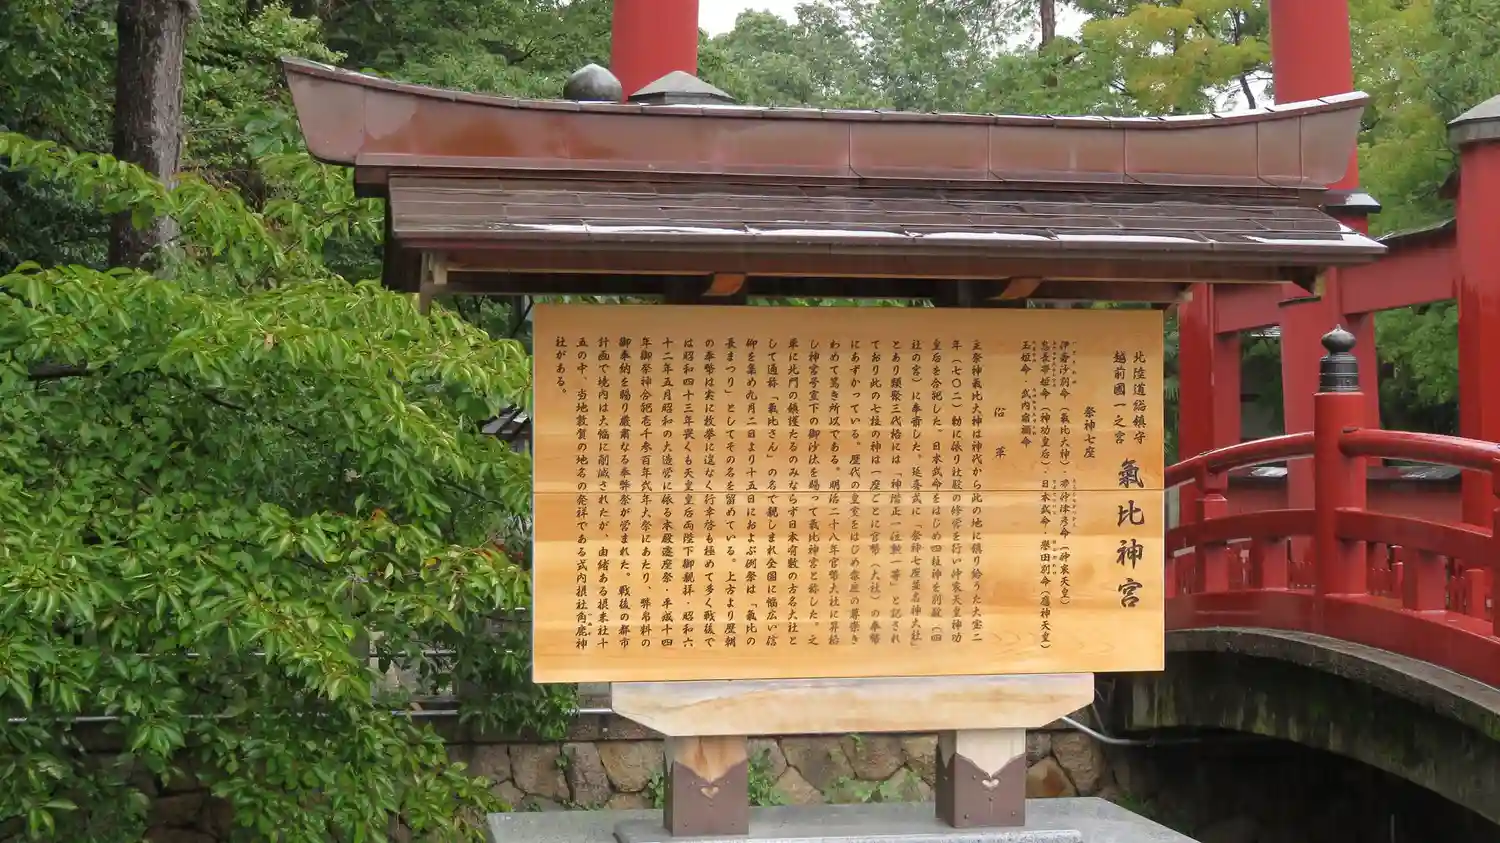 北陸道総鎮守
越前國一之宮
氣比神宮
祭神七座
伊奢沙別命（氣比大神）・帯仲津彦命（仲哀天皇）
息長帯姫命（神功皇后）・日本武命・譽田別命（應神天皇）
玉姫命・武内宿禰命
沿革
主祭神氣比大神は神代から此の地に鎮り給うた大宝二
年（七〇二）勅に依り社殿の修営を行い仲哀天皇神功
皇后を合祀した。日本武命をはじめ四柱神を別殿（四
社の宮）に奉齋した。延喜式に「祭神七座並名神大社」
とあり類聚三代格には「神階正一位勲一等」と記され
ており此の七柱の神は一座ごとに官幣（大社）の奉幣
にあずかっている。歴代の皇室をはじめ衆庶の尊崇き
わめて篤き所以である。明治二十八年官幣大社に昇格
し神宮号宣下の御沙汰を賜って氣比神宮と称した。之
単に北門の鎮護たるのみならず日本有数の古名大社と
して通称「氣比さん」の名で親しまれ全国に幅広い信
仰を集め九月二日より十五日におよぶ例祭は「氣比の
長まつり」としてその名を留めている。上古より歴朝
の奉幣は実に枚挙に遑なく行幸啓も極めて多く戦後で
は昭和四十三年畏くも天皇皇后両陛下御親拝・昭和六
十二年五月昭和の大造営に依る本殿遷座祭・平成十四
年御祭神合祀壱千参百年式年大祭にあたり、幣帛料の
御奉納を賜り厳粛なる奉幣祭が営まれた。戦後の都市
計画で境内は大幅に削減されたが、由緒ある摂末社十
五の中、当地敦賀の地名の発祥である式内摂社角鹿神
社がある。